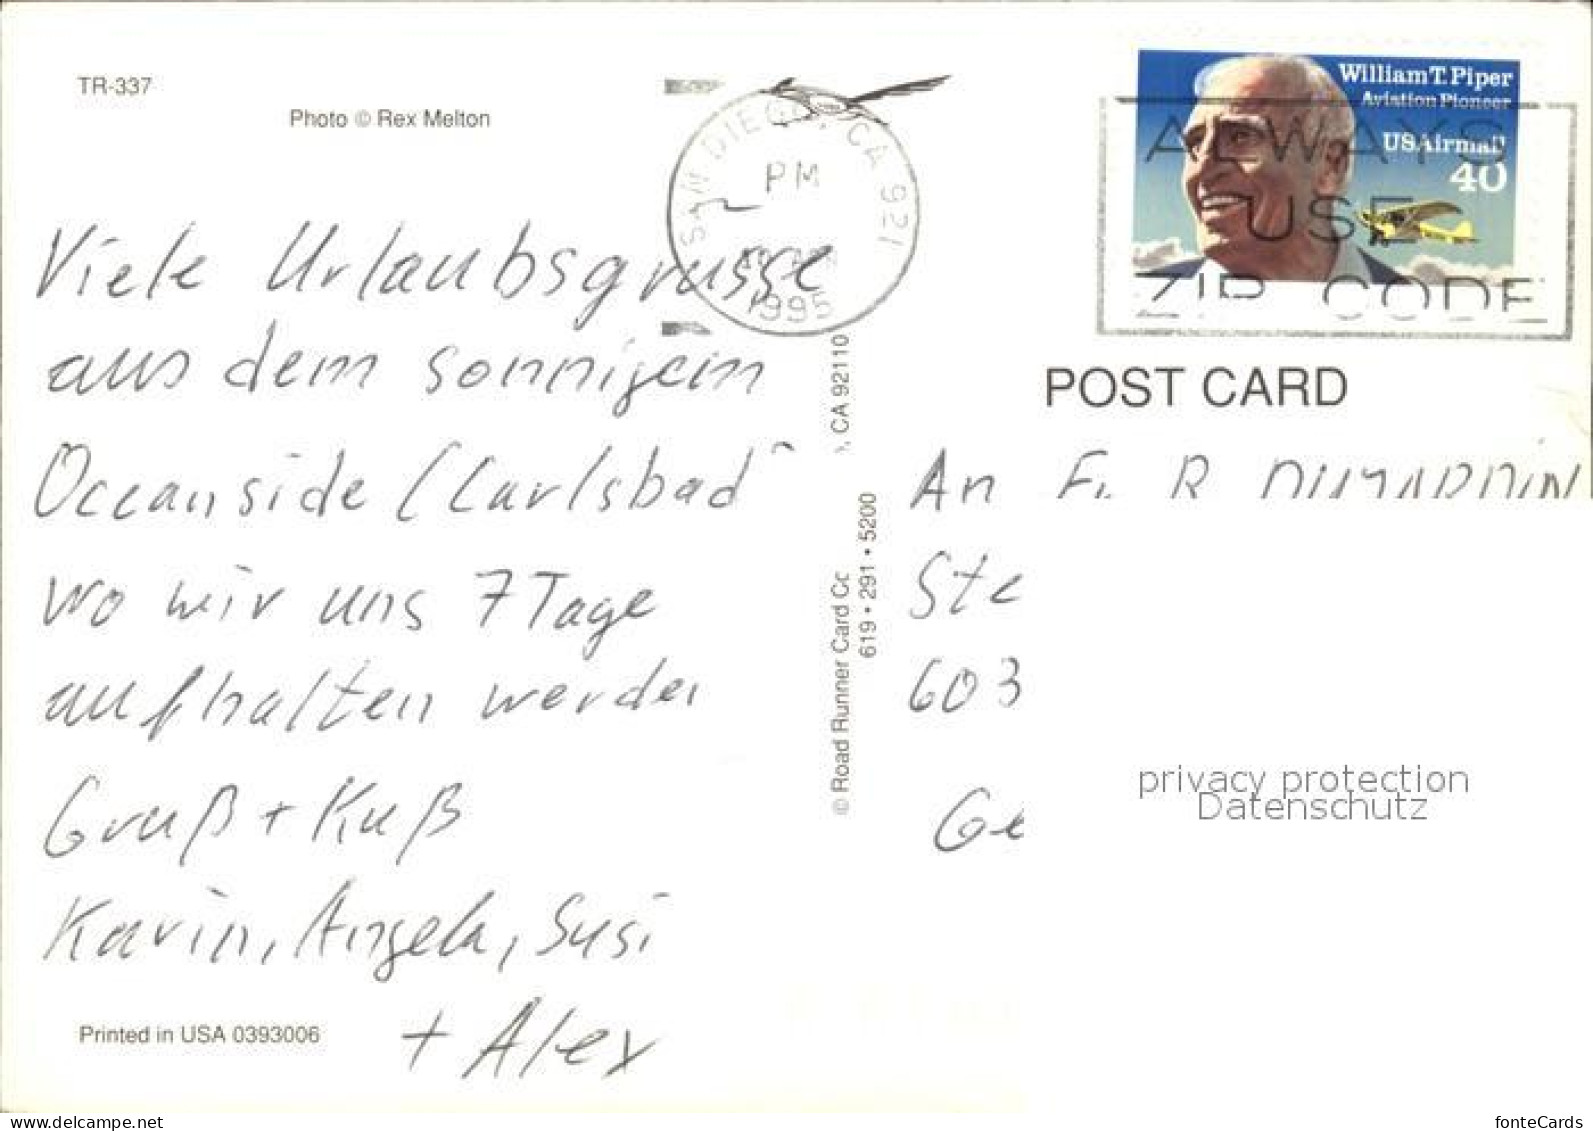 TR-337
Photo © Rex Melton
SAN DIEGO, CA 921
PM
1995
William T. Piper
Aviation Pioneer
USAirmail
40
ALWAYS
USE
ZIP CODE
POST CARD
Viele Urlaubsgrusse
aus dem sonnigem
Oceanside (Carlsbad
wo wir uns 7 Tage
aufhalten werden
Gruß + Kuß
Karin, Angela, Susi
+ Alex
Printed in USA 0393006
© Road Runner Card Co
, CA 92110
619 • 291 • 5200
An Fr. R
Ste
603
Ge
privacy protection
Datenschutz
fonteCards